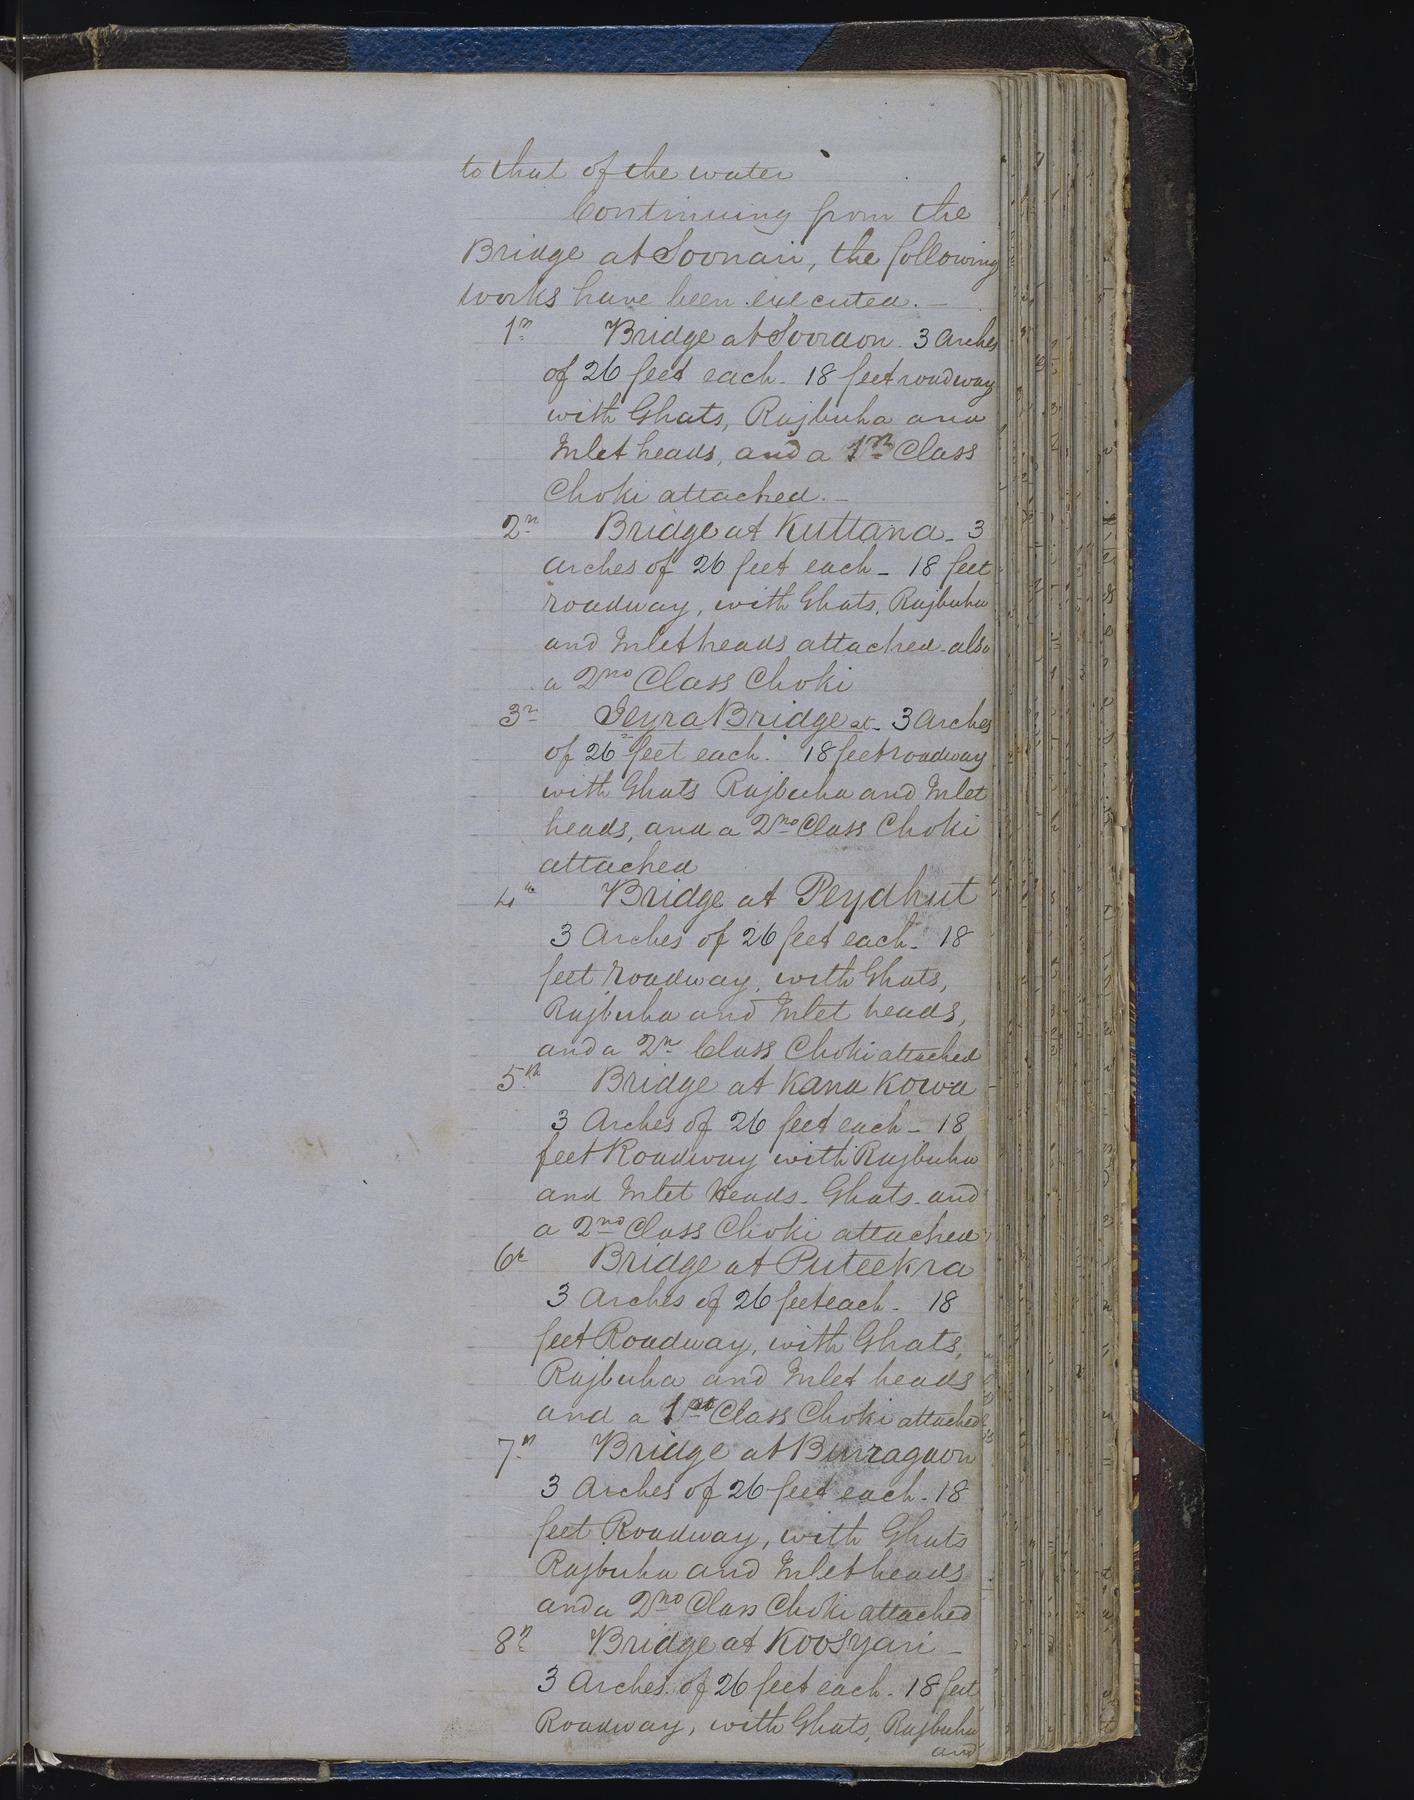 to that of the water
Continuing from the
Bridge at Soonari, the following
works have been executed. —
1st Bridge at Soordon. 3 Arches
of 26 feet each. 18 feet roadway
with Ghats, Rajbuha and
Inlet heads, and a 1st Class
Choki attached. —
2n Bridge at Kuttana - 3
arches of 26 feet each - 18 feet
roadway, with Ghats, Rajbuha
and Inlet heads attached - also
a 2nd Class Choki
3n Jeyra Bridge at - 3 Arches
of 26 feet each. 18 feet roadway
with Ghats Rajbuha and Inlet
heads, and a 2nd Class Choki
attached
4th Bridge at Peydhut
3 Arches of 26 feet each - 18
feet roadway, with Ghats,
Rajbuha and Inlet heads,
and a 2n Class Choki attached
5th Bridge at Kana Kowa
3 Arches of 26 feet each - 18
feet Roadway with Rajbuha
and Inlet Heads - Ghats - and
a 2nd Class Choki attached
6th Bridge at Puteekra
3 Arches of 26 feet each - 18
feet Roadway, with Ghats,
Rajbuha and Inlet heads
and a 1st Class Choki attached
7th Bridge at Burragaon
3 Arches of 26 feet each - 18
feet Roadway, with Ghats
Rajbuha and Inlet heads
and a 2nd Class Choki attached
8th Bridge at Koosyari —
3 Arches of 26 feet each - 18 feet
Roadway, with Ghats, Rajbuha
and